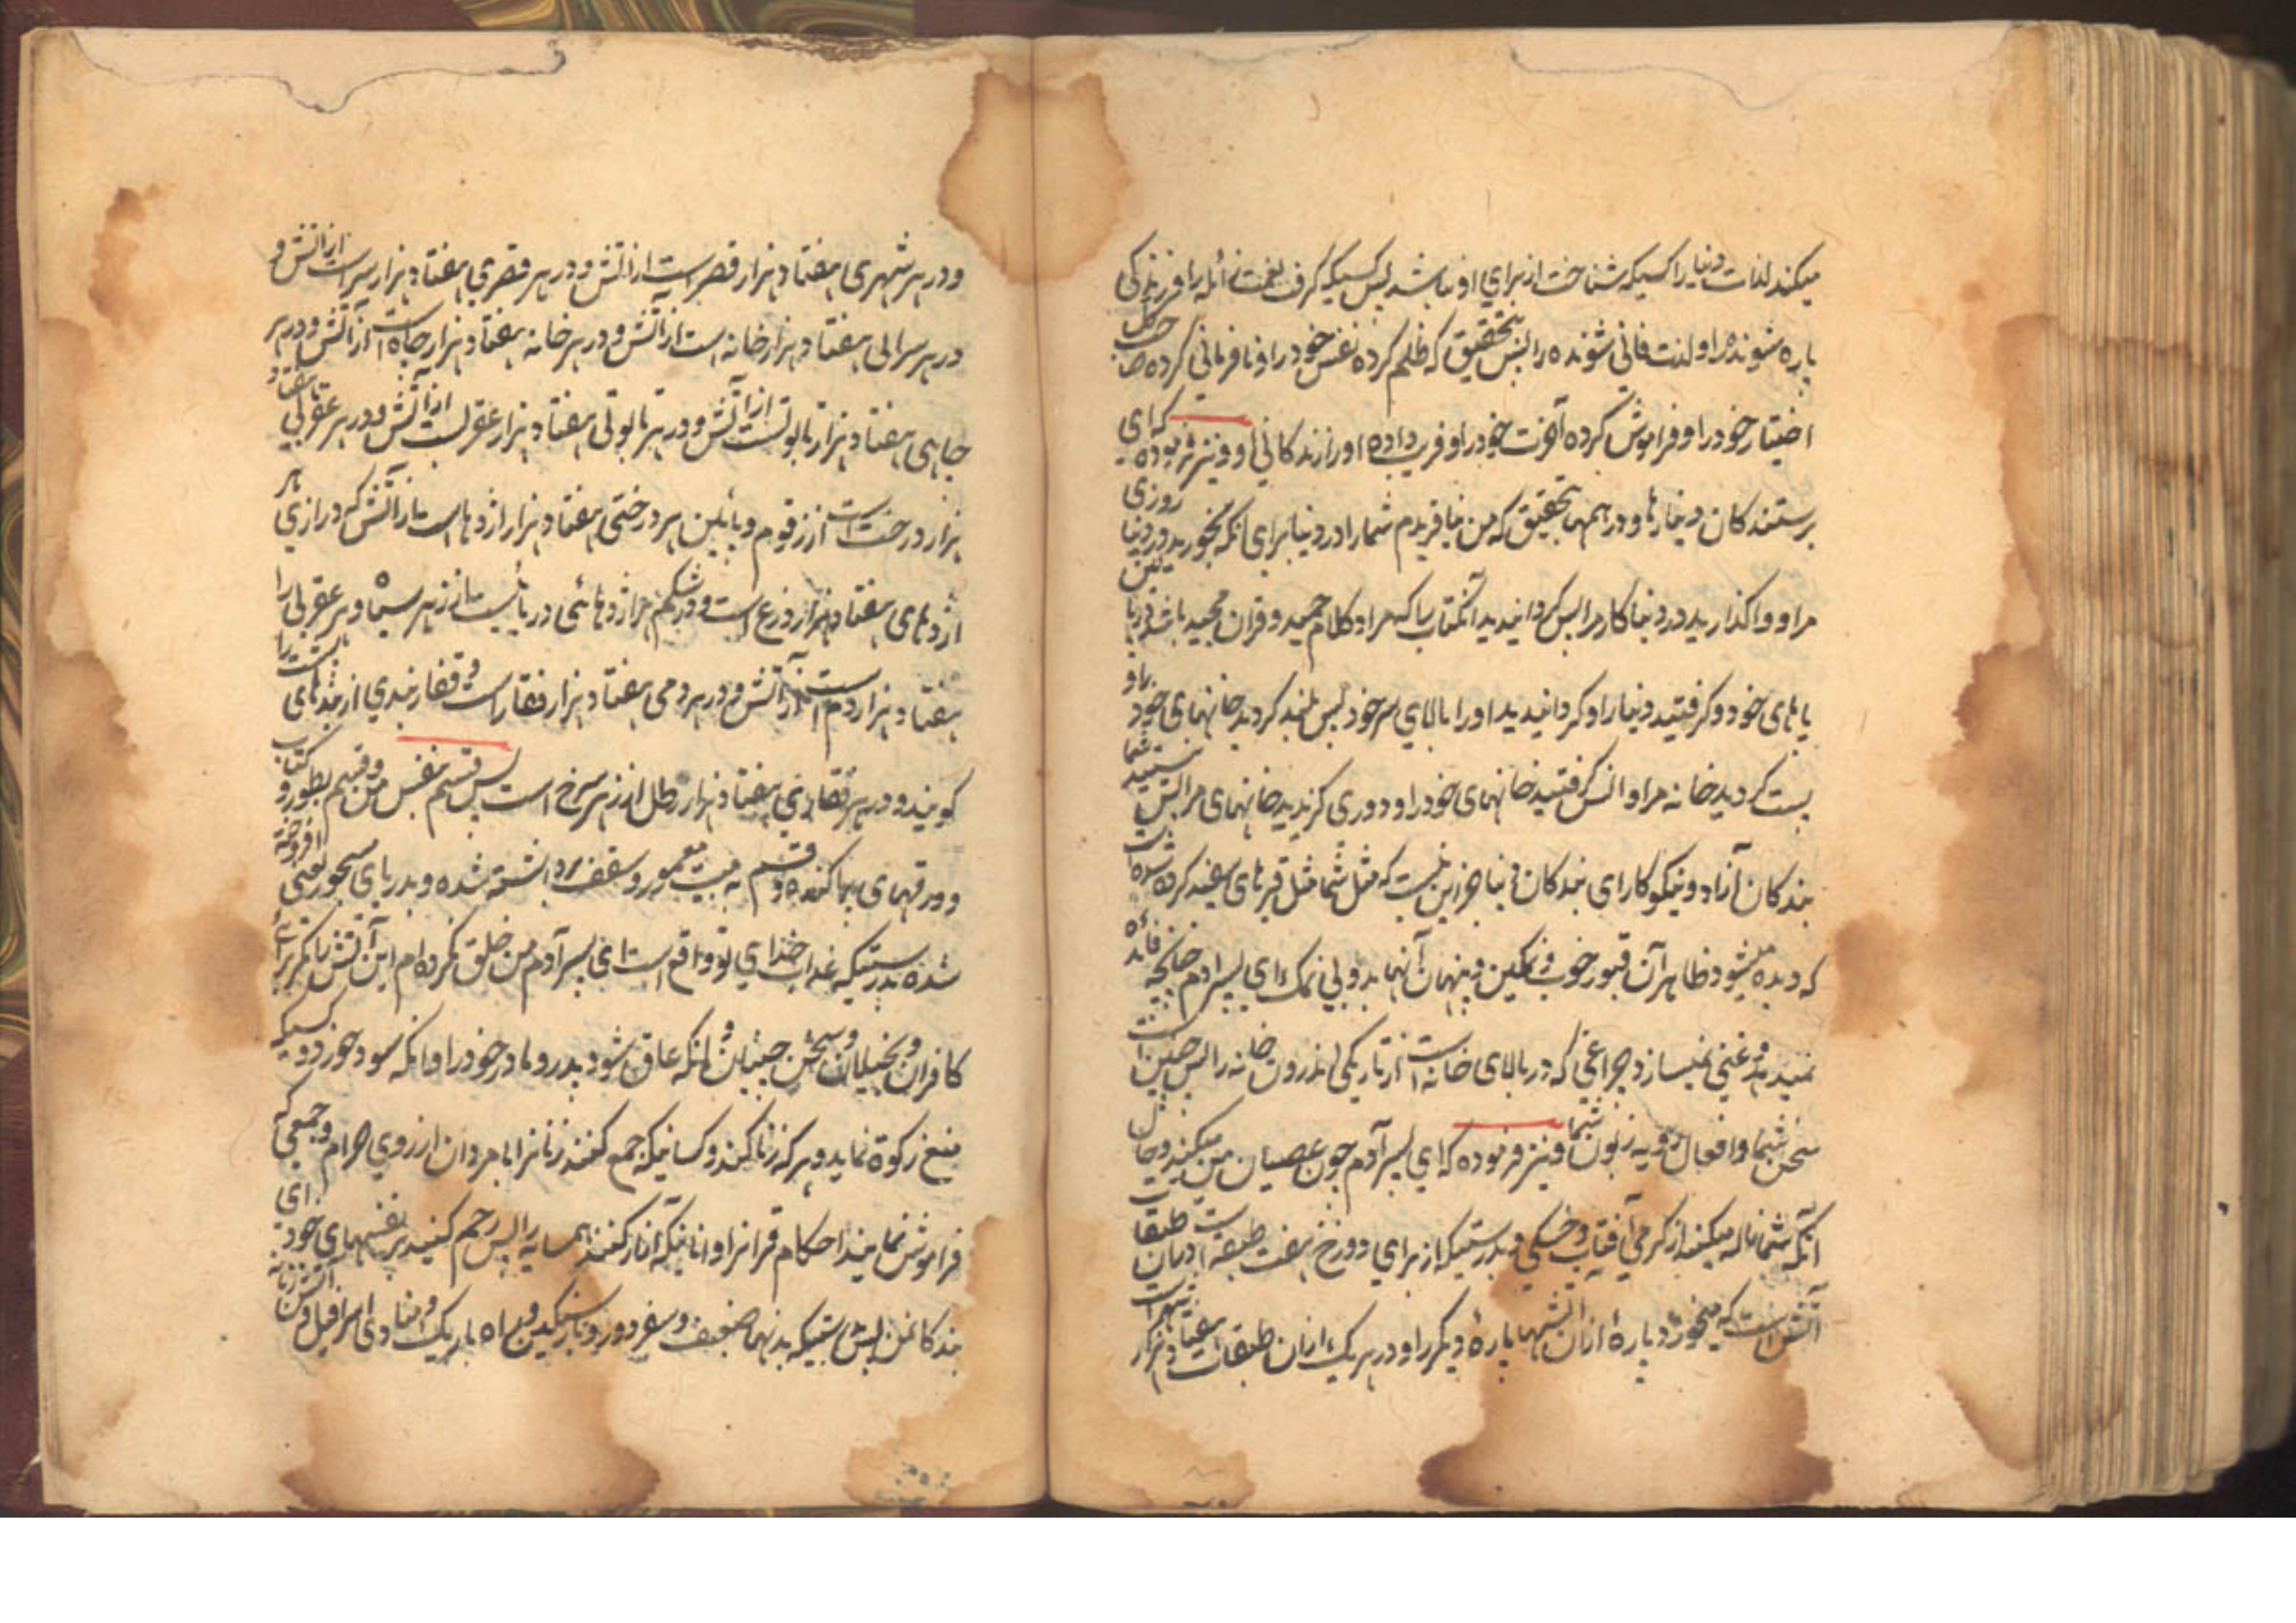 میکند لذات دنیا را کسیکه شناخت از برای او نباشد پس کسیکه گرفت نعمت زائله را و زندگی
پاره شونده را و لذت فانی شونده را پس بتحقیق که ظلم کرده نفس خود را و نافرمانی کرده
اختیار خود را و فراموش کرده آخرت خود را و فریب داده او را زندکانی او و نیز فرموده که ای
پرستندکان دینارها و درهمها بتحقیق که من نیافریدم شما را در دنیا برای آنکه بخورید روزی
مرا و واکذارید در دنیا کار مرا پس کردانیدید آنکتاب را که مراد کلام حمید و قران مجید باشد در زیر
پاهای خود و کرفتید دنیا را و کردانیدید او را بالای سر خود پس بلند کردید خانهای خود را و
پست کردید خانه مرا و انس کرفتید خانهای خود را و دوری کزیدید خانهای مرا پس نیستید شما
بندکان آزاد و نیکوکار ای بندکان دنیا جز این نیست که مثل شما مثل قبرهای سفید کرده شده است
که دیده میشود ظاهر آن قبور خوب و نمکین و پنهان آنها بد و بی نمک ای پسر آدم چنانچه فائده
نمیدهد و غنی نمیسازد چراغی که در بالای خانه است از تاریکی اندرون خانه را پس چنین است
سخن شما و افعال رویه زبون شما و نیز فرموده که ای پسر آدم چون عصیان من میکنید و حال
آنکه شما ناله میکنید از کرمی آفتاب و خشکی و بدرستیکه از برای دوزخ هفت طبقه است طبقات
آتش است که میخورد پارهٔ ازان آتشها پارهٔ دیگر را و در هر یک ازان طبقات هفتاد هزار شهر است
و در هر شهری هفتاد هزار قصر است از آتش و در هر قصری هفتاد هزار سرا است از آتش و
در هر سرائی هفتاد هزار خانه است از آتش و در هر خانه هفتاد هزار چاه است از آتش و در هر
چاهی هفتاد هزار تابوتست از آتش و در هر تابوتی هفتاد هزار عقربست از آتش و در هر عقربی هفتاد
هزار درخت است از زقوم و پائین هر درختی هفتاد هزار اژدها است از آتش که درازی هر
اژدهای هفتاد هزار ذرع است و در شکم هر اژدهائی دریائیست از زهر سیاه و هر عقربی را
هفتاد هزار دم است از آتش و در هر دمی هفتاد هزار فقار است و فقار بندی از بندهای پشت را
کویند و در هر فقاری هفتاد هزار رطل از زهر سرخ است پس قسم بنفس من و قسم بطور و کتاب
و ورقهای پهن کننده و قسم به بیت معمور و سقف برداشته شده و بدریای مسجور یعنی افروخته
شده بدرستیکه عذاب خدای تو واقع است ای پسر آدم من خلق نکرده ام این آتش را مکر برای
کافران و بخیلان و سخن چینان و آنکه عاق شود پدر و مادر خود را و آنکه سود خورد و کسیکه
منع زکوة نماید و هر که زنا کند و کسانیکه جمع کنند زنانرا با مردان از روی حرام و جمعی که
فراموش نمایند احکام قرانرا و آنانیکه آزار کنند همسایه را پس رحم کنید بر نفسهای خود ای
بندکان من پس بدرستیکه بدنها ضعیف و سفر دور و بار سنکین و راه باریک و منادی اسرافیل و